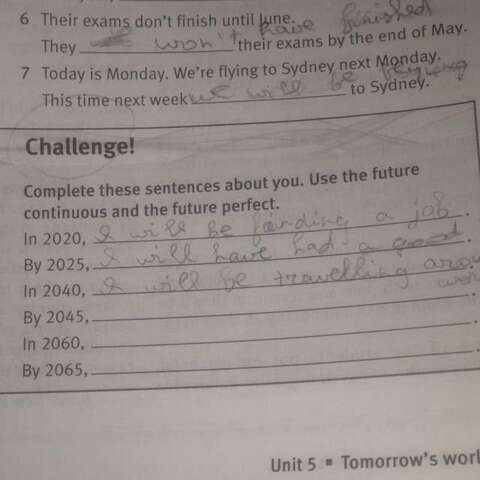 6 Their exams don't finish until June.
They won't have finished their exams by the end of May.
7 Today is Monday. We're flying to Sydney next Monday.
This time next week we will be flying to Sydney.
Challenge!
Complete these sentences about you. Use the future
continuous and the future perfect.
In 2020, I will be finding a job.
By 2025, I will have had a good.
In 2040, I will be travelling arou
wor
By 2045,
In 2060,
By 2065,
Unit 5 ▪ Tomorrow's worl